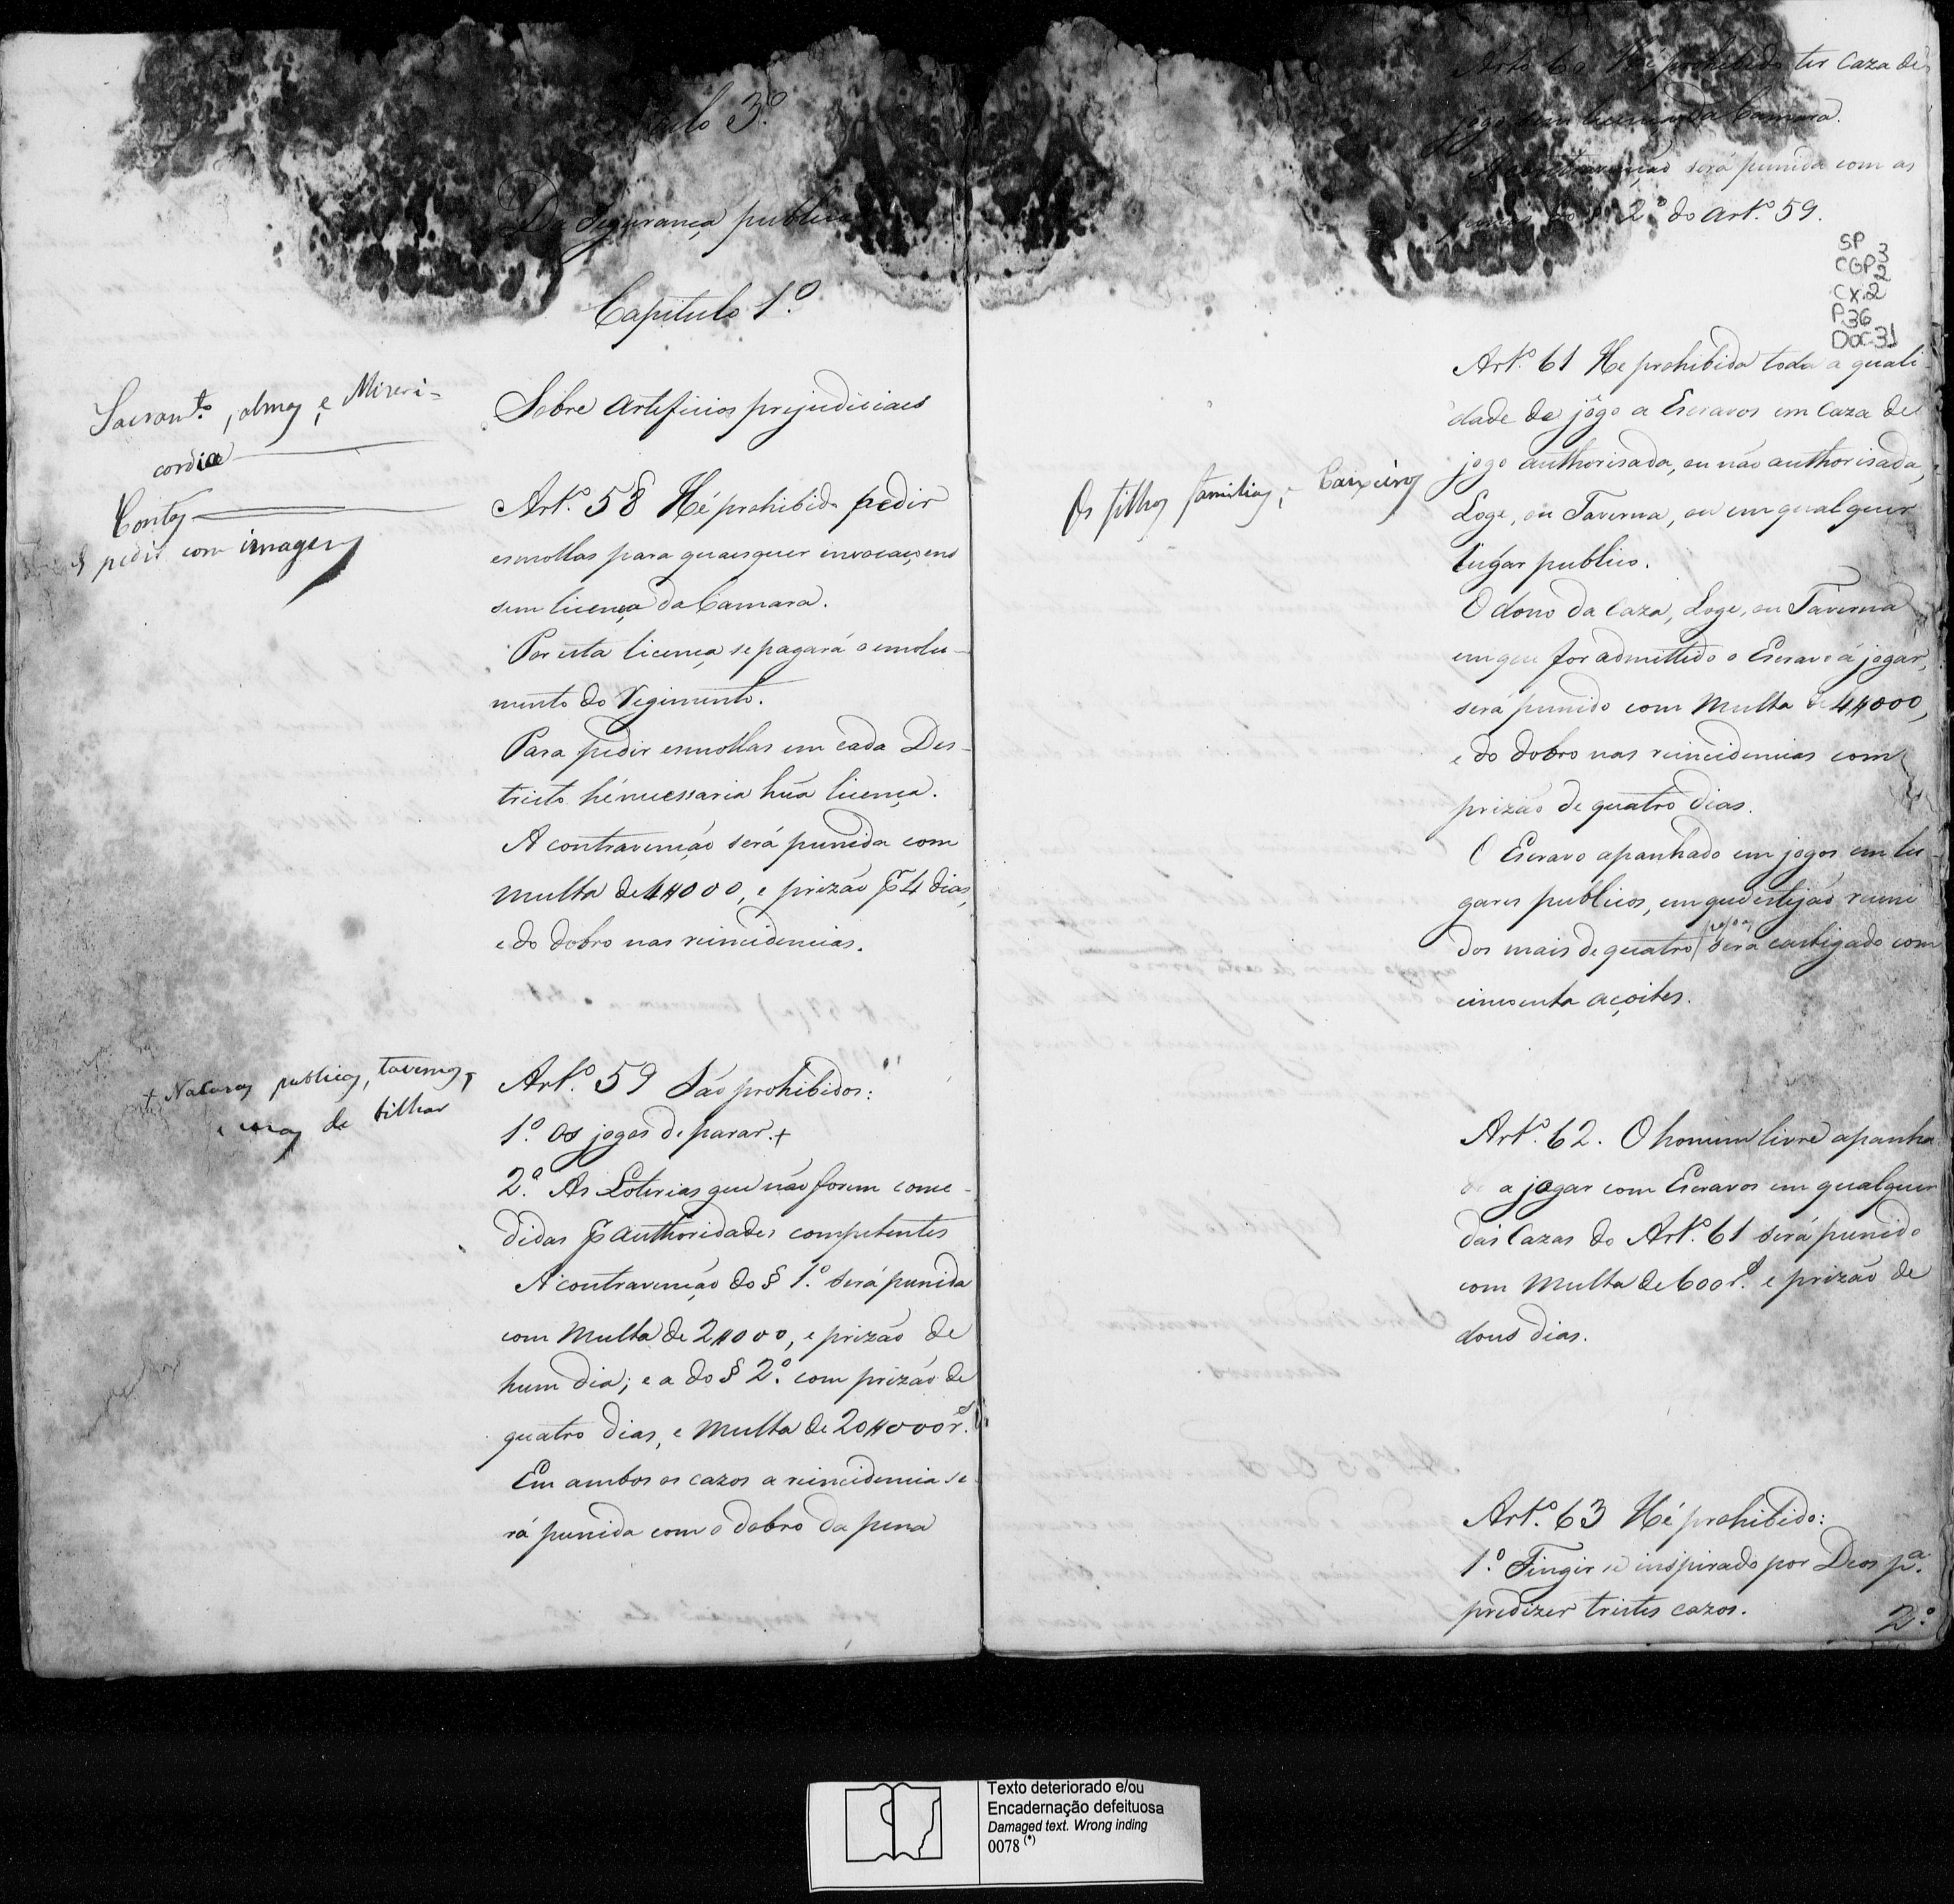 tulo 3.º
Da Segurança publica
Capitulo 1.º
Sacram.to, almas, e Miseri-
cordia
Sobre artificios prejudiciaes
Contas
pedir com imagens
Art.º 58 Hé prohibido pedir
esmollas para quaesquer invocaçoens
sem licença da Camara.
Por esta licença se pagará o emolu-
mento do Regimento.
Para pedir esmollas em cada Des-
tricto hé necessaria húa licença.
A contravenção será punida com
multa de 4#000, e prizão pr 4 dias,
e do dobro nas reincidencias.
+ Nas cazas publicas, tavernas,
e cazas de bilhar
Art.º 59 São prohibidos:
1.º Os jogos de parar. +
2.º As Loterias que não forem conce-
didas p authoridades competentes
A contravenção do § 1.º será punida
com multa de 2#000, e prizão de
hum dia; e a do § 2.º com prizão de
quatro dias, e multa de 20#000 r.s
Em ambos os cazos a reincidencia se
rá punida com o dobro da pena
Arto 60 Hé prohibido ter caza de
jogo sem licença da Camara.
A contravenção será punida com as
penas do § 2.º do Art.º 59.
SP
CGP3
2
Cx.2
P.36
DOC.31
Art.º 61 He prohibida toda a quali-
dade de jôgo a Escravos em Caza de
jogo authorisada, ou não authorisada,
Os filhos familias, e Caixeiros
Loge, ou Taverna, ou em qualquer
lugar publico.
O dono da Caza, Loge, ou Taverna
em que for admittido o Escravo á jogar,
será punido com multa de 4#000,
e do dobro nas reincidencias com
prizão de quatro dias.
O Escravo apanhado em jogos em lu-
gares publicos, em que estejão reuni
dos mais de quatro pessoas será castigado com
cincoenta açoites.
Art.º 62. O homem livre apanha
do a jogar com Escravos em qualquer
das Cazas do Art.º 61 será punido
com multa de 600 r.s e prizão de
dous dias.
Art.º 63 Hé prohibido:
1.º Fingir se inspirado por Deos p.a
predizer tristes cazos.
2.º
Texto deteriorado e/ou
Encadernação defeituosa
Damaged text. Wrong inding
0078 (*)